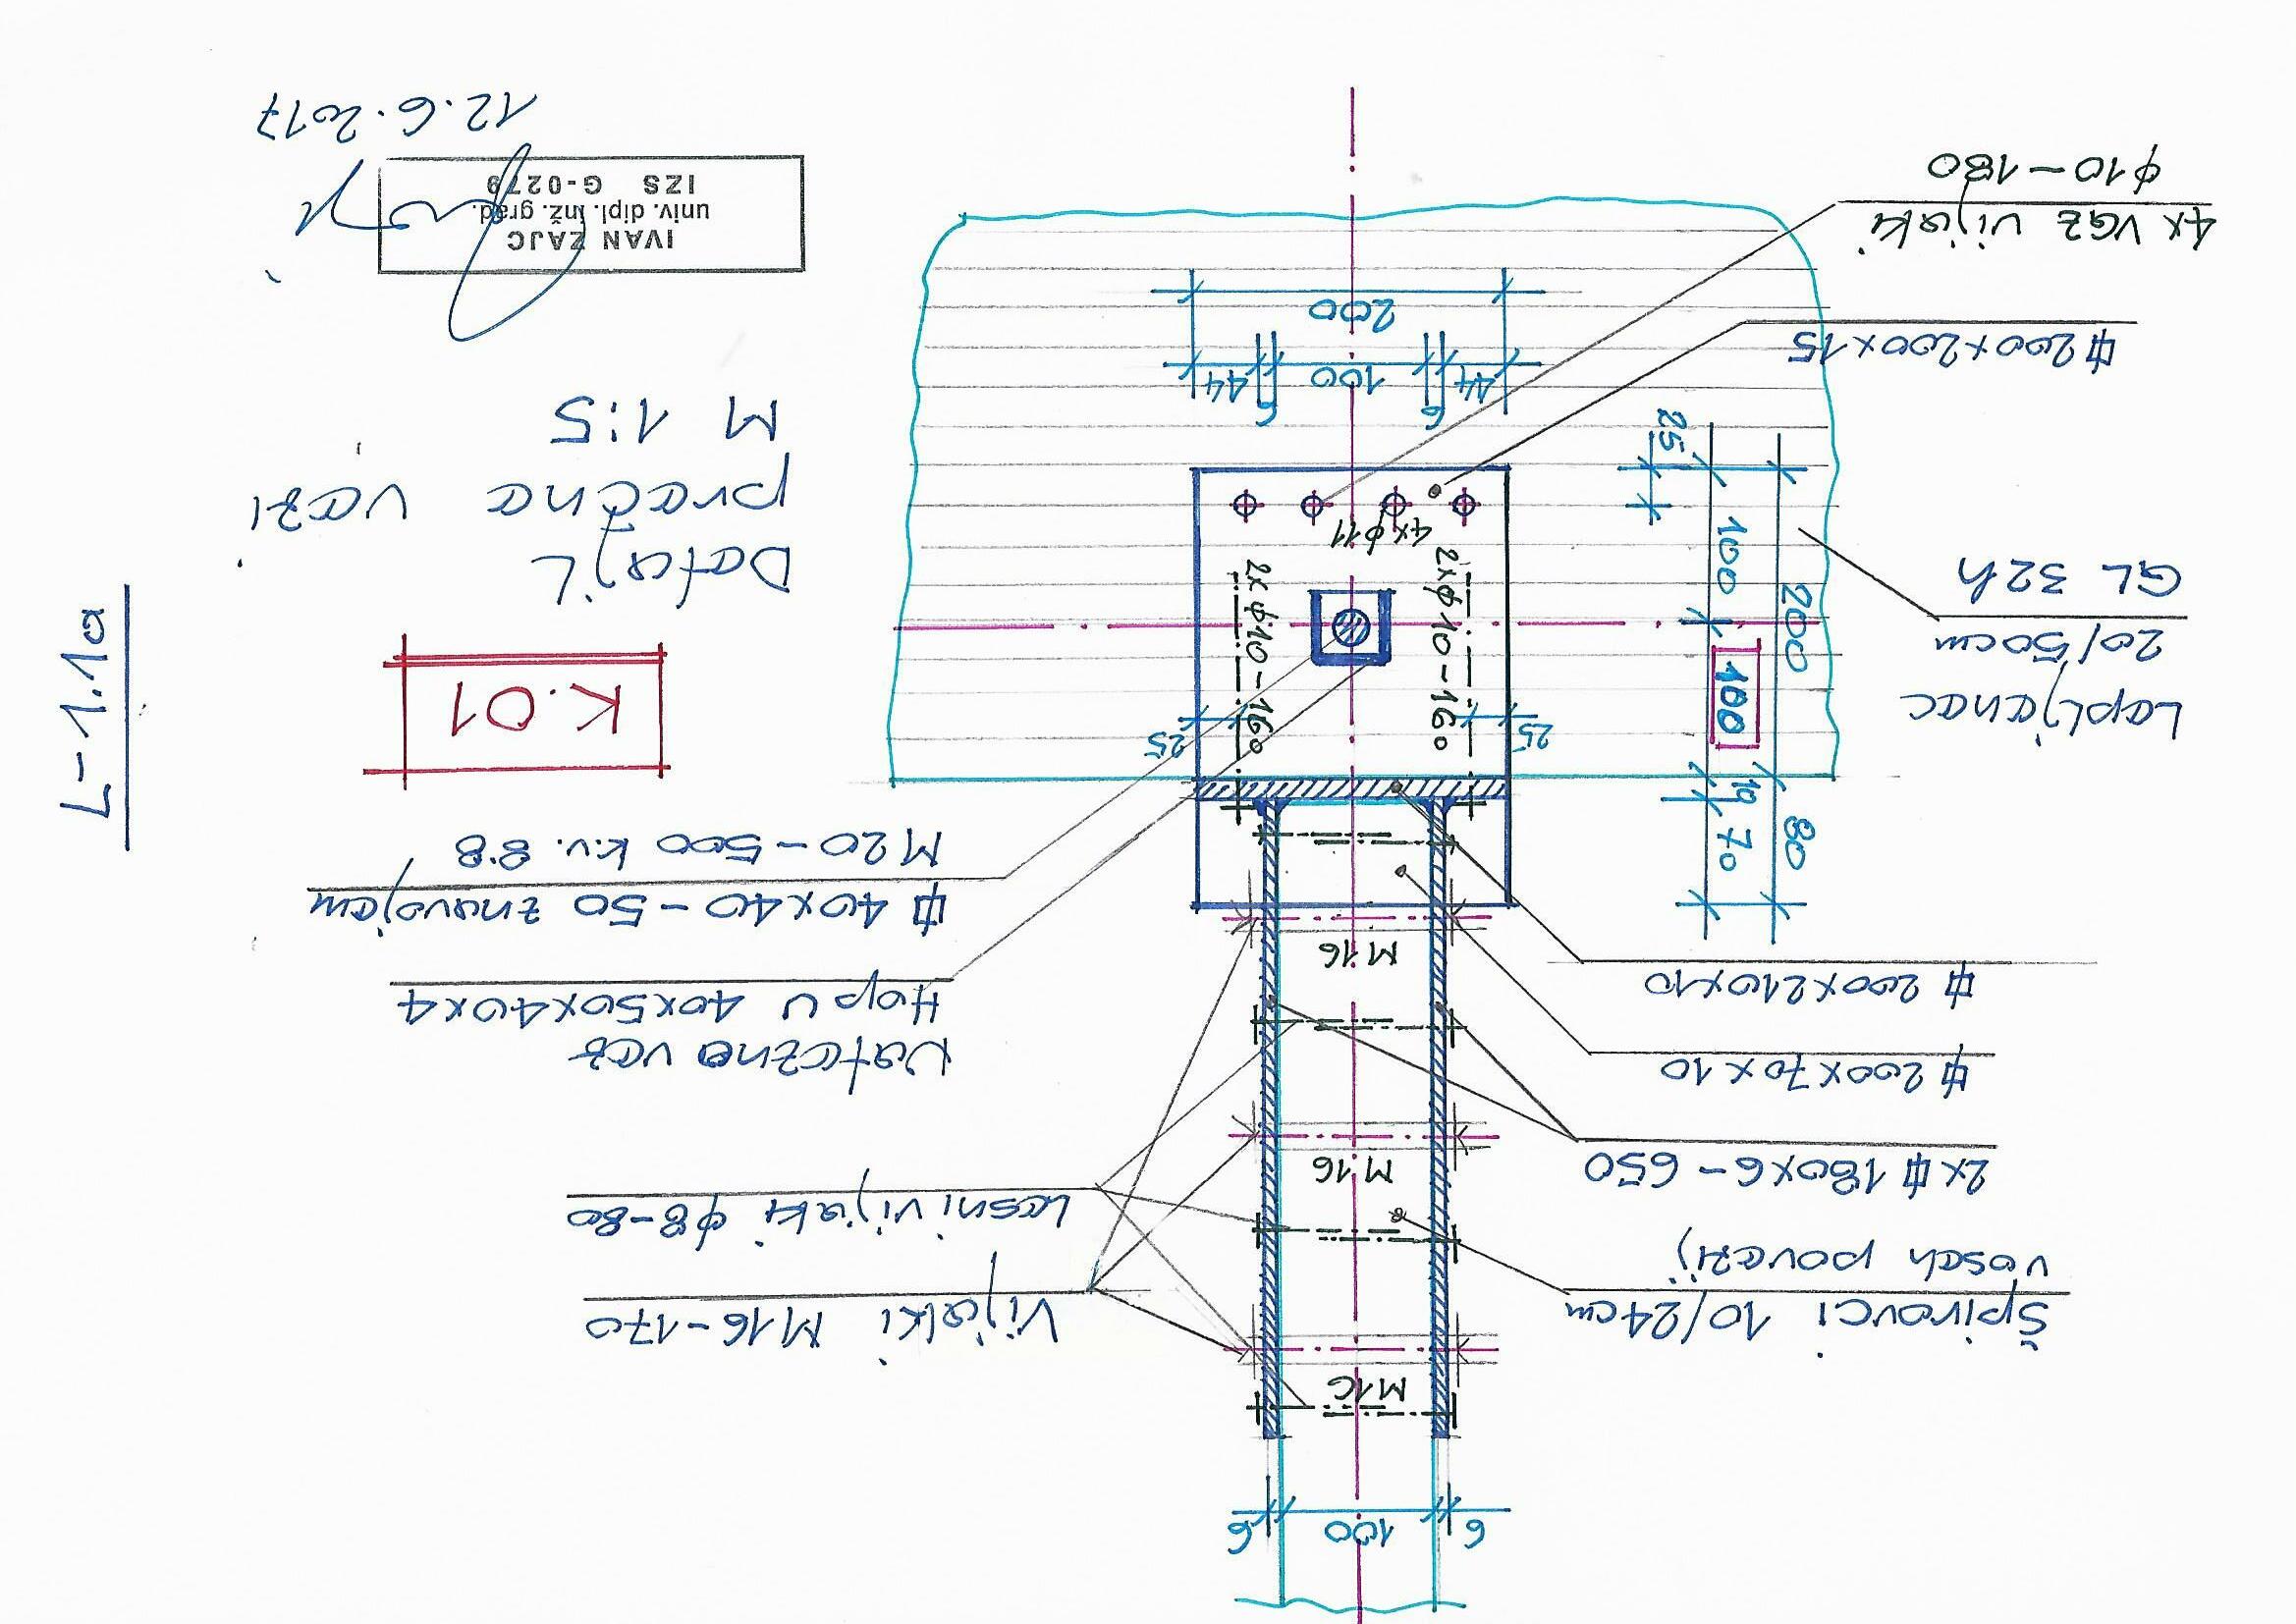 6 100 6
M16
Špirovci 10/24cm
vseh povezij
Vijaki M16-170
Lesni vijaki ϕ8-80
M16
2x ⌗ 180x6-650
⌗ 200x70x10
⌗ 200x210x10
M16
Natezna vez
Hop U 40x50x40x4
⌗ 40x40-50 z navojem
M20-500 k.v. 8.8
80
70
10
25
25
2xϕ10-160
2xϕ10-160
4xϕ11
100
200
100
25
Lepljenec
20/50cm
GL 32h
⌗ 200x200x15
4x vez vijaki
ϕ10-180
6 6
44 100 44
200
L-1.1a
K.01
Detajl
prečne vezi
M 1:5
IVAN ZAJC
univ. dipl. inž. grad.
IZS G-0279
12.6.2017